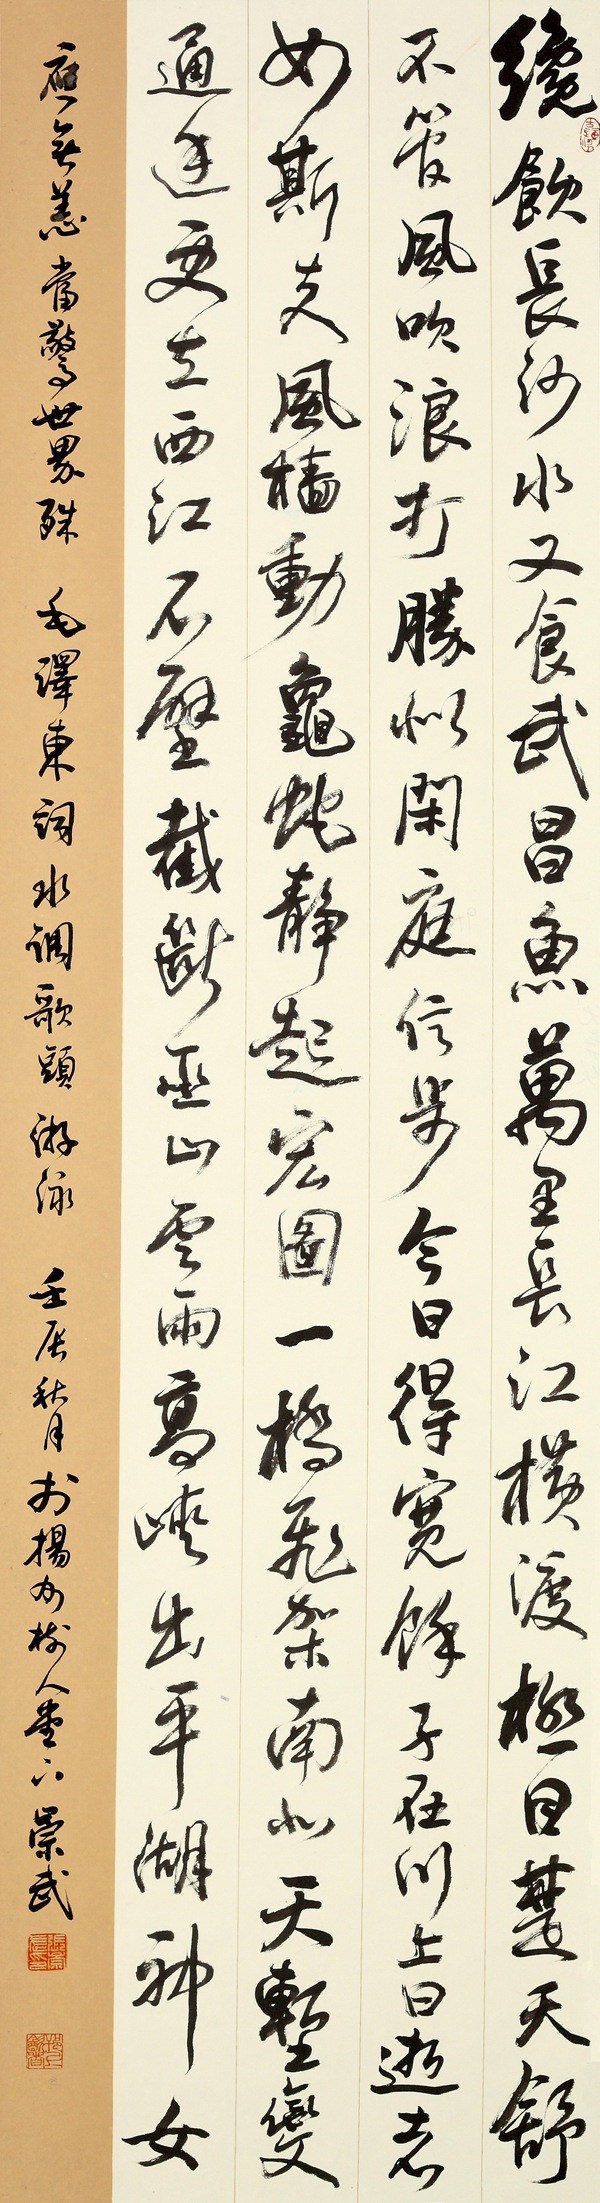 纔飲長沙水又食武昌魚萬里長江橫渡極目楚天舒
不管風吹浪打勝似閑庭信步今日得寬餘子在川上曰逝者
如斯夫風檣動龜蛇静起宏圖一橋飛架南北天塹變
通途更立西江石壁截斷巫山雲雨高峽出平湖神女
應無恙當驚世界殊 毛澤東詞水調歌頭游泳 壬辰秋月於揚州樹人堂下崇武